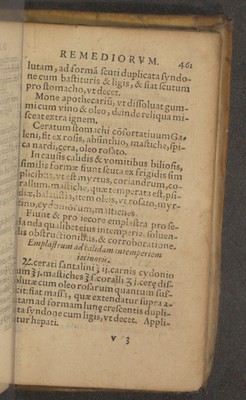 REMEDIORVM. 461
lutam, ad formã scuti duplicata syndo-
ne cum bastituris & ligis, & fiat scutum
pro stomacho, vt decet.
Mone apothecariũ, vt dissoluat gum-
mi cum vino & oleo, deinde reliqua mi-
sceat extra ignem.
Ceratum stomachi cõfortatiuum Ga-
leni, fit ex rosis, absinthio, mastiche, spi-
ca nardi, cera, oleo rosato.
In causis calidis & vomitibus biliosis,
similis formæ fiunt scuta ex frigidis sim
plicibus, vt est myrtus, coriandrum, co-
rallium, mastiche, quæ temperata est, psi-
diæ, balaustia, item oleis, vt rosato, myr-
tino, cydoniorum, mastiches.
Fiunt & pro iecore emplastra pro
landa qualibet eius intemperie, soluen-
dis obstructionibus, & corroboratione.
Emplastrum ad calidam intemperiem
iecinoris.
♃. cerati santalini ʒ ij. carnis cydonio
rum ʒ j. mastiches ʒ ſ. coralli ʒ j. ceræ dis-
solutæ cum oleo rosarum quantum suf-
ficit: fiat massa, quæ extendatur supra a-
lutam ad formam lunæ crescentis dupli-
cata syndone cum ligis, vt decet. Appli-
tur hepati.
V 3